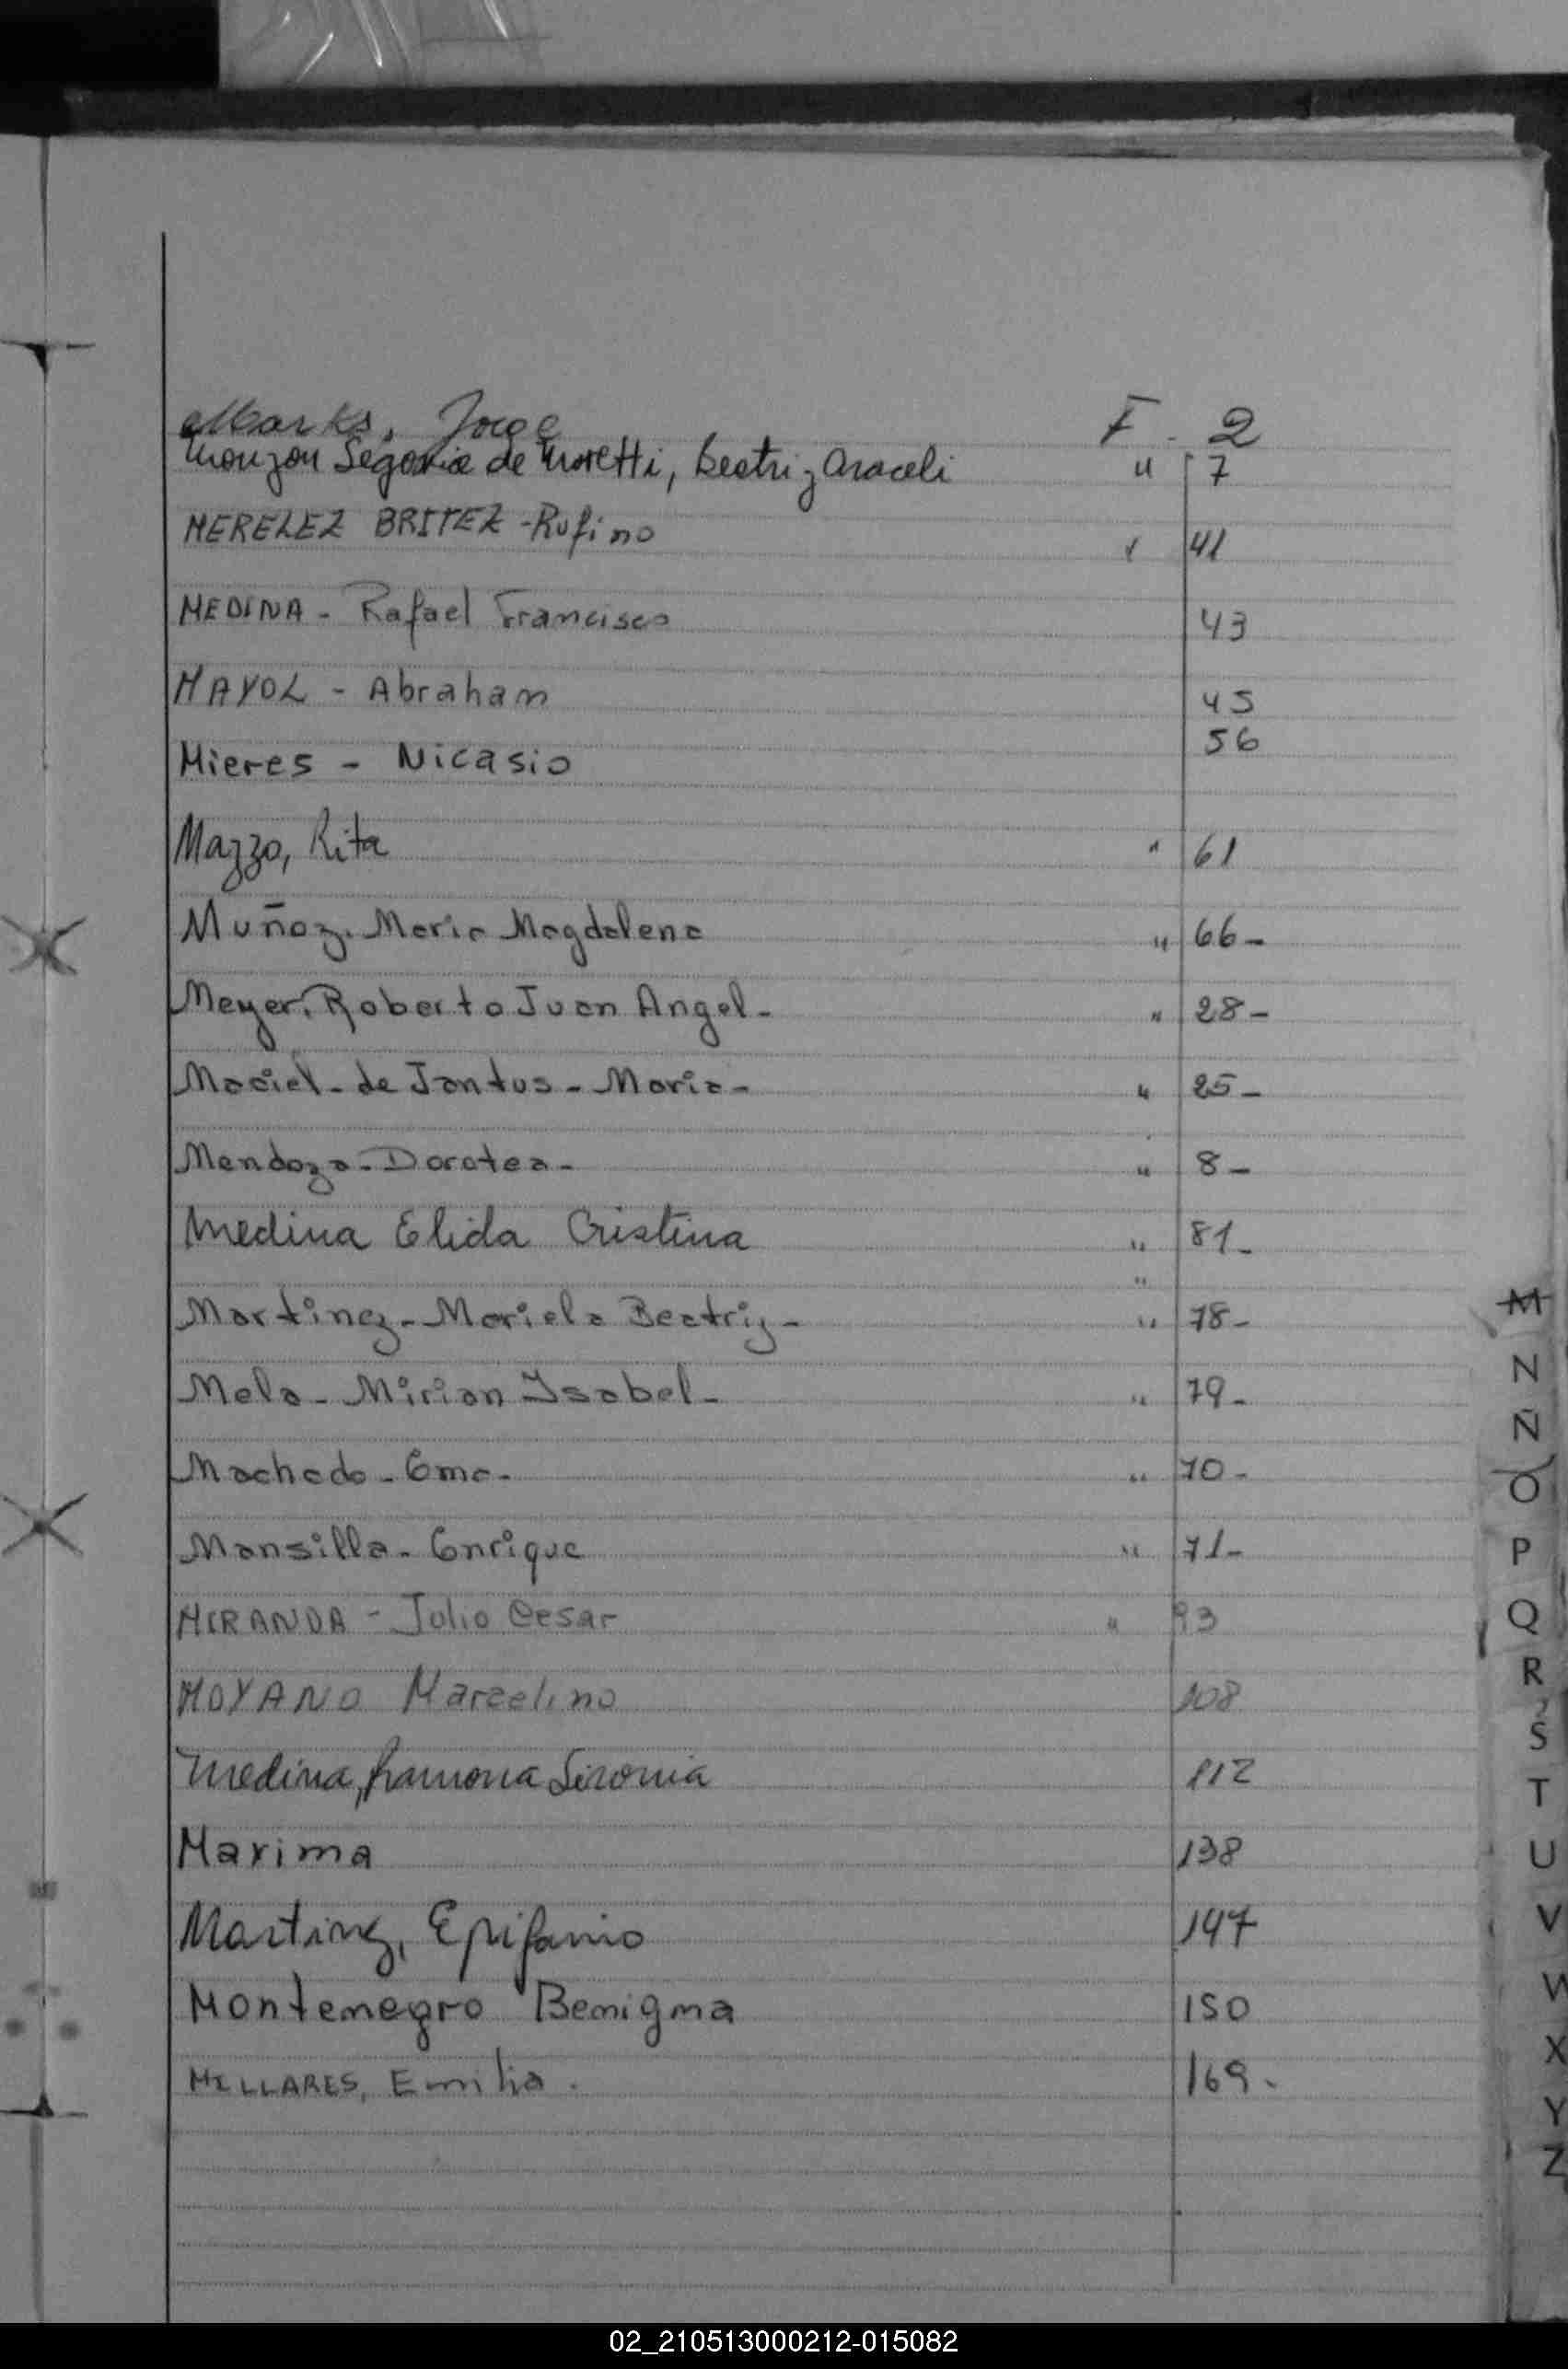 Marks, Jorge F. 2
Monzon Segovia de Moretti, Beatriz Araceli " 7
MERELEZ BRITEZ - Rufino " 41
MEDINA - Rafael Francisco 43
MAYOL - Abraham 45
Mieres - Nicasio 56
Mazzo, Rita " 61
Muñoz. Maria Magdalena " 66-
Meyer. Roberto Juan Angel- " 28-
Maciel- de Jantus- Maria- " 25-
Mendoza- Dorotea- " 8-
Medina Elida Cristina " 81-
"
Martinez- Mariela Beatriz- " 78-
Mela- Mirian Isabel- " 79-
Machado- Ema- " 70-
Mansilla- Enrique " 71-
MIRANDA - Julio Cesar " 93
MOYANO Marcelino 108
Medina, Ramona 112
Marima 138
Martinez, Epifanio 147
Montenegro Benigna 150
MILLARES, Emilia. 169-
M
N
Ñ
O
P
Q
R
S
T
U
V
W
X
Y
Z
02_210513000212-015082